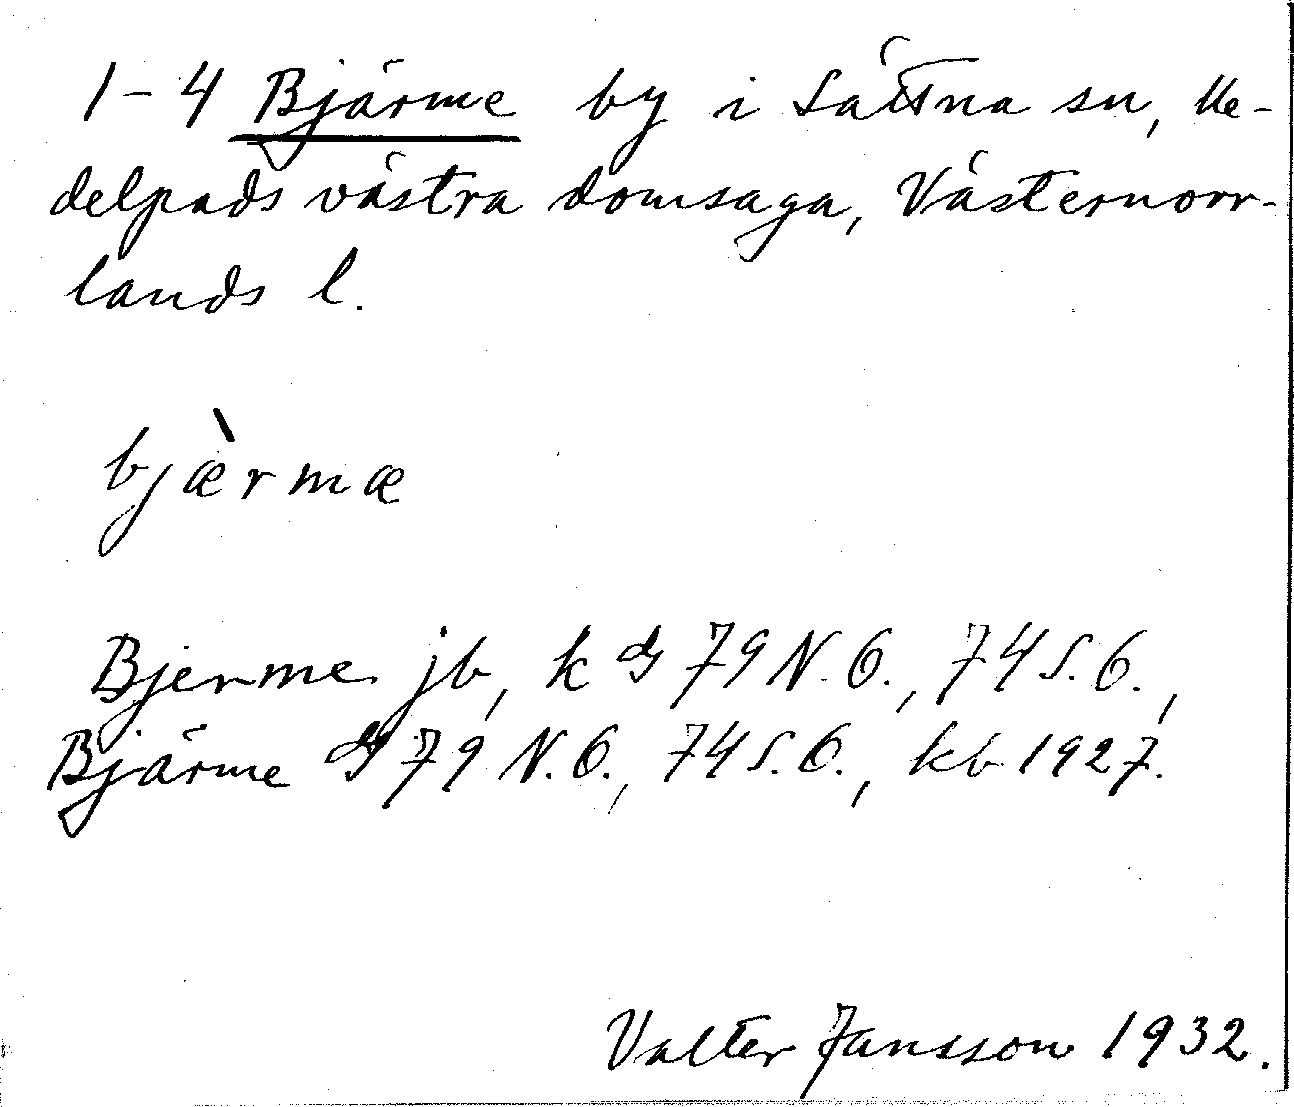 1-4 Bjärme by i Sättna sn, Me-
delpads västra domsaga, Västernorr-
lands l.
bjæ̀rmæ
Bjerme jb, k 79 N.O., 74 S.O.,
Bjärme 79 N.O., 74 S.O., kb 1927.
Valter Jansson 1932.